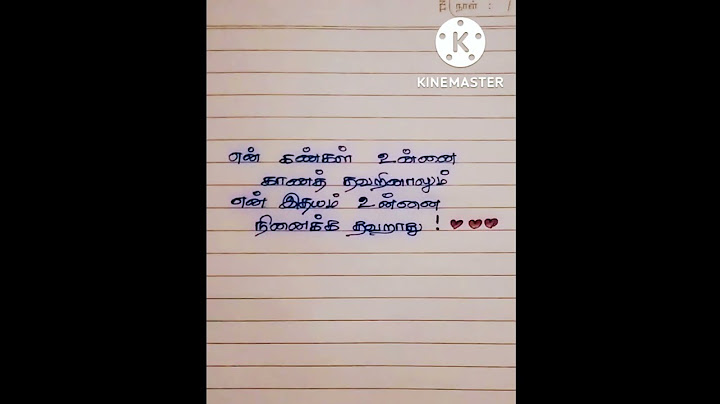 நாள் :
KINEMASTER
என் கண்கள் உன்னை
காணத் தவறினாலும்
என் இதயம் உன்னை
நினைக்க தவறாது !